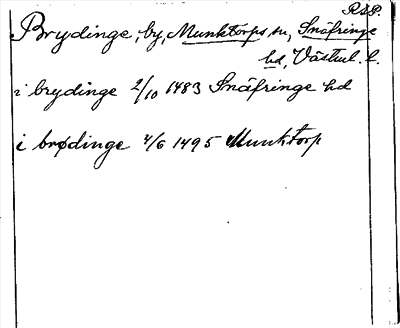 R.A.P.
Brydinge, by, Munktorps sn, Snäfringe
hd, Västml. l.
i brydinge 2/10 1483 Snäfringe hd
i brødinge 4/6 1495 Munktorp